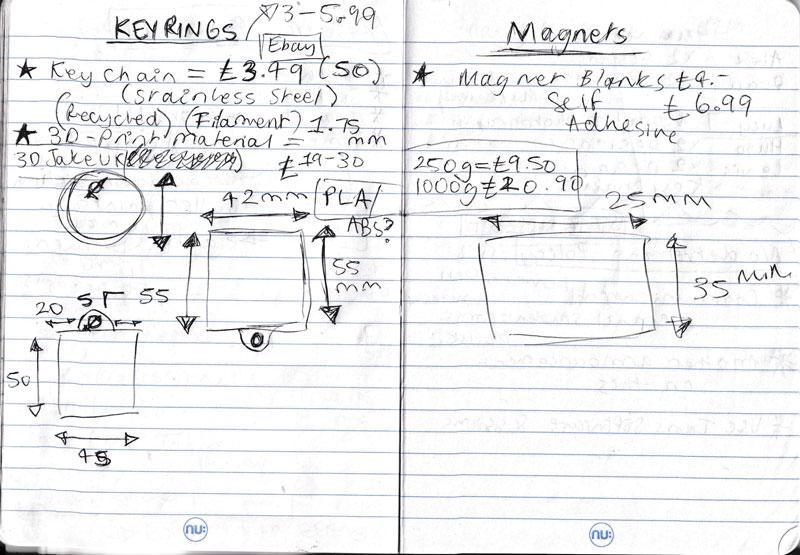 KEYRINGS
3-5.99
Ebay
★ Key chain = £3.49 (50)
(Stainless Steel)
(Recycled) (Filament) 1.75
★ 3D-Print material = mm
3D Jake UK
£19-30
42mm
PLA/
ABS?
55
mm
20
55
50
45
nu:
Magnets
★ Magner Blanks £4.-
Self £6.99
Adhesive
250g=£9.50
1000g £20.90
25mm
35 mm
nu: